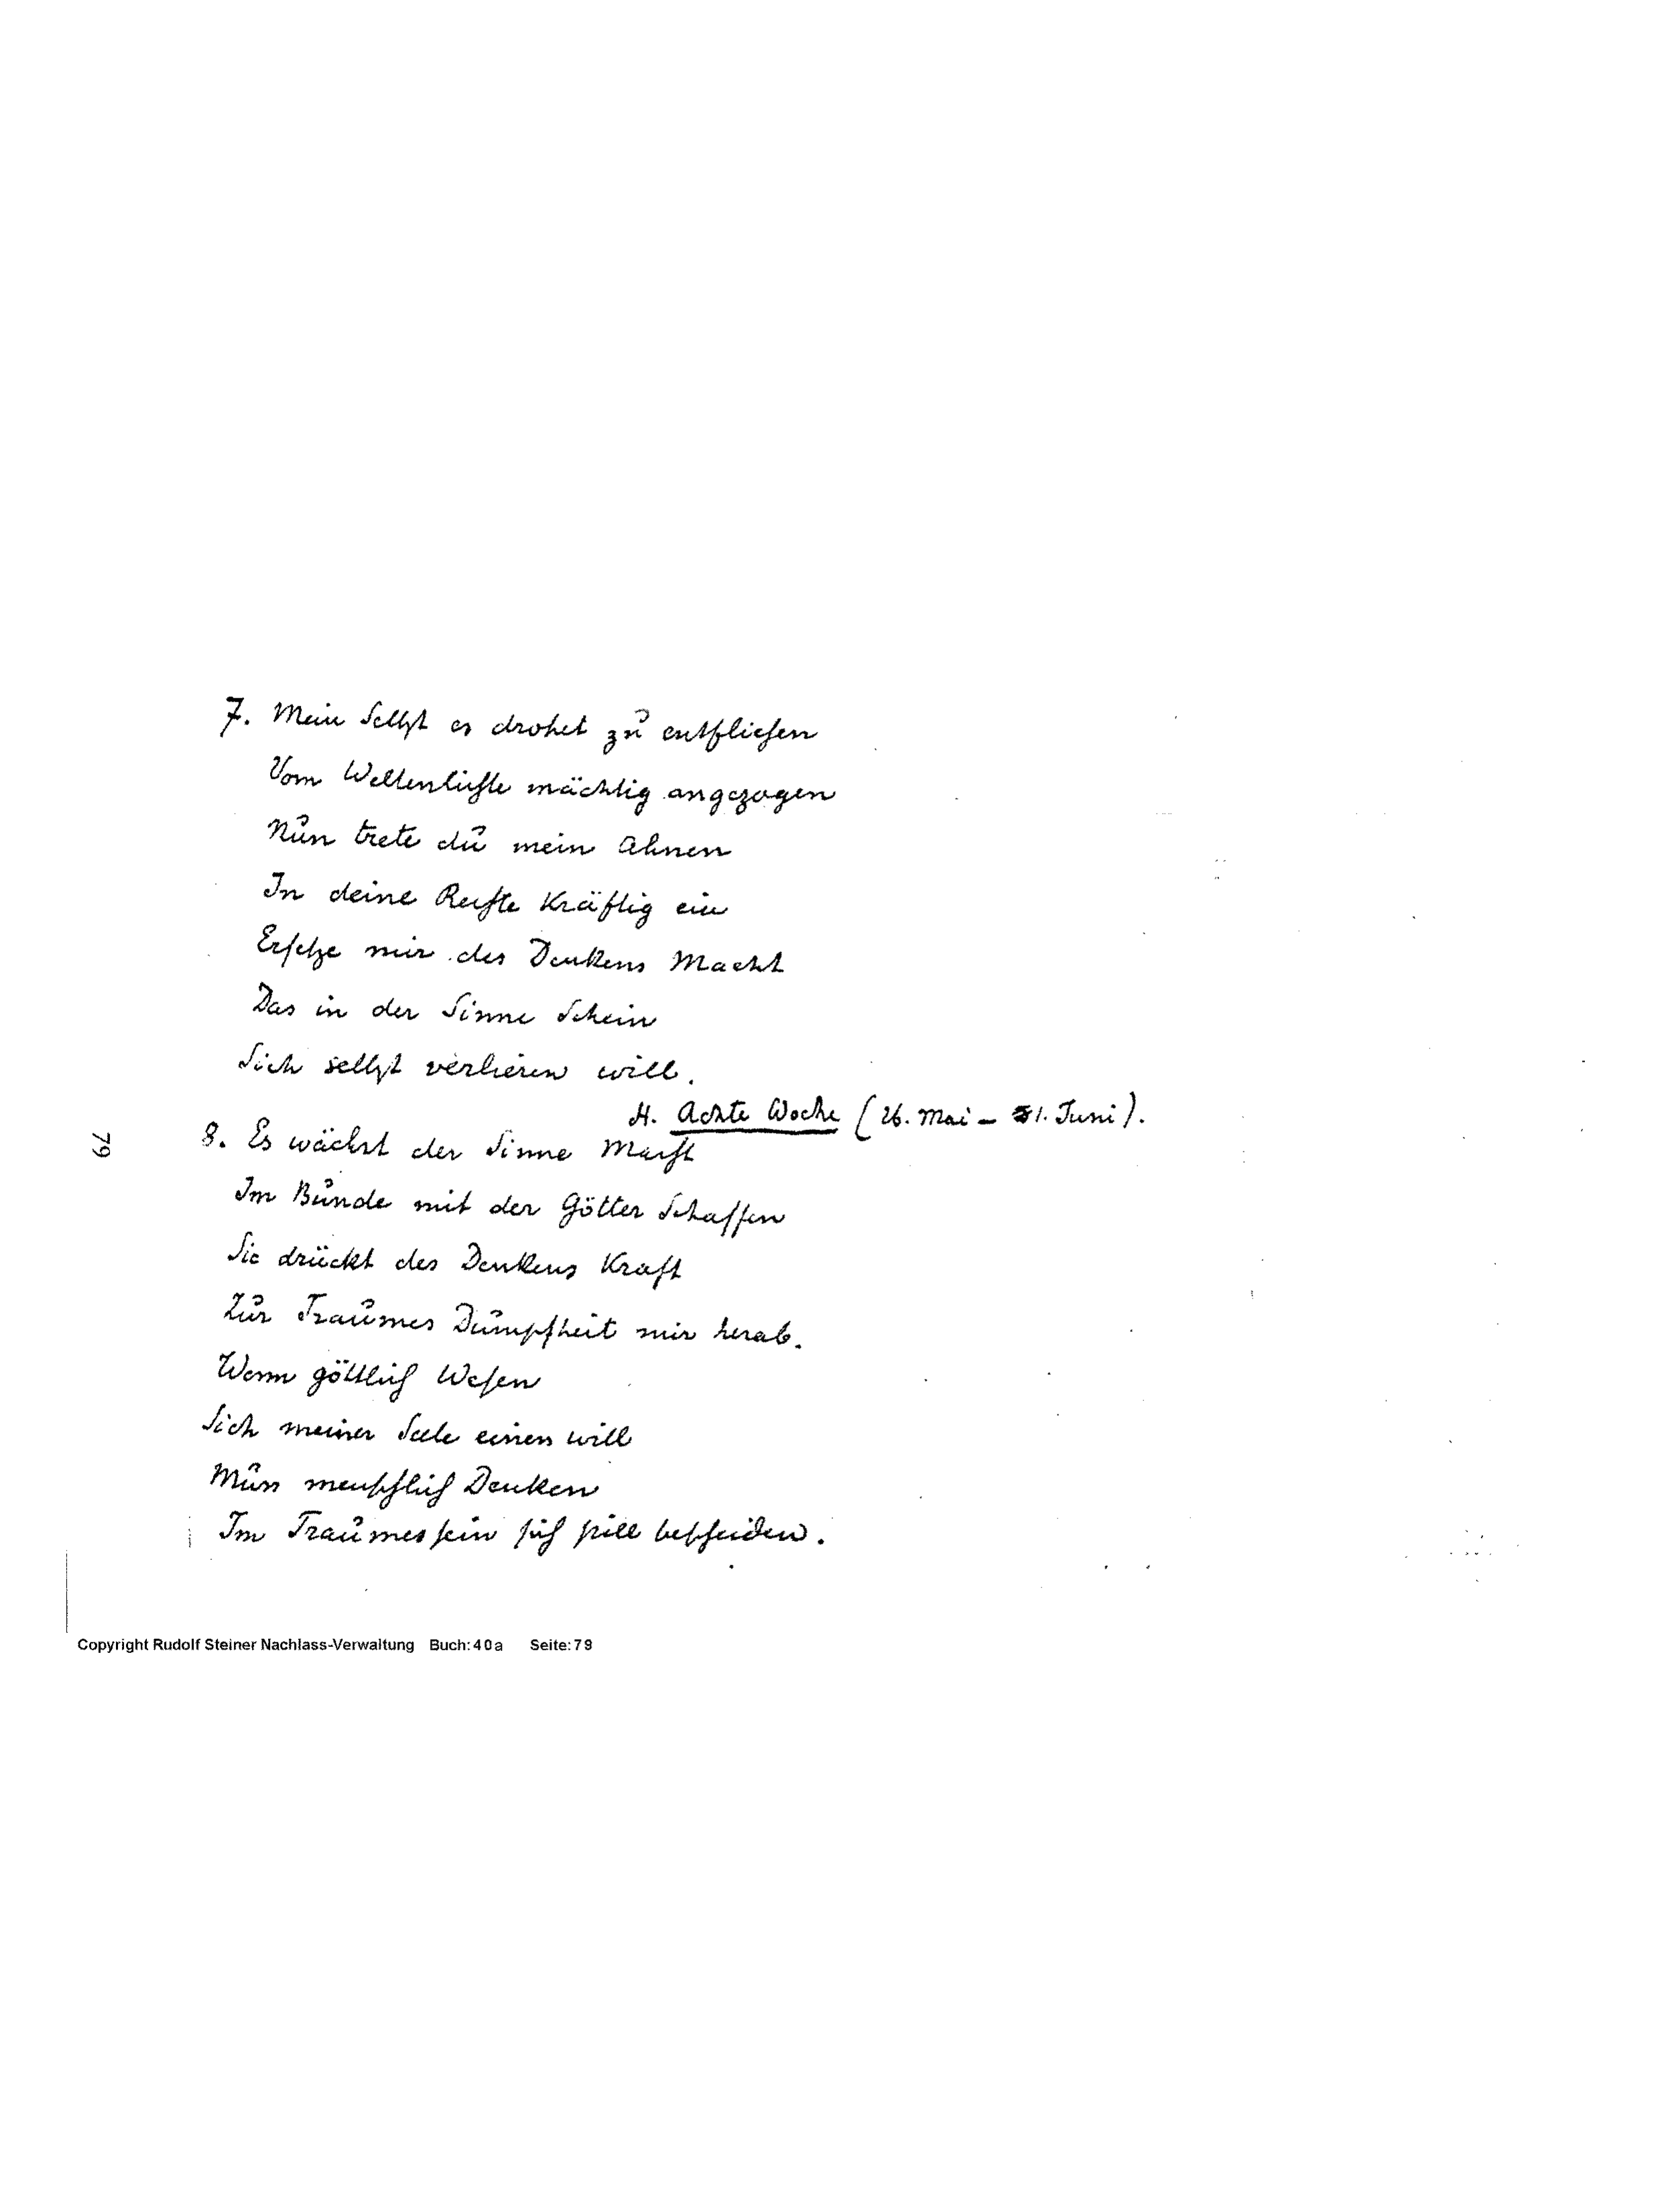 7. Mein Selbst es drohet zu entfliehen
Vom Weltenlichte mächtig angezogen
Nun trete du mein Ahnen
In deine Rechte kräftig ein
Ersetze mir des Denkens Macht
Das in der Sinne Schein
Sich selbst verlieren will.
H. Achte Woche (26. Mai – 1. Juni).
8. Es wächst der Sinne Macht
Im Bunde mit der Götter Schaffen
Sie drückt des Denkens Kraft
Zur Traumes Dumpfheit mir herab.
Wenn göttlich Wesen
Sich meiner Seele einen will
Muss menschlich Denken
Im Traumessein sich still bescheiden.
79
Copyright Rudolf Steiner Nachlass-Verwaltung Buch: 40a Seite: 79